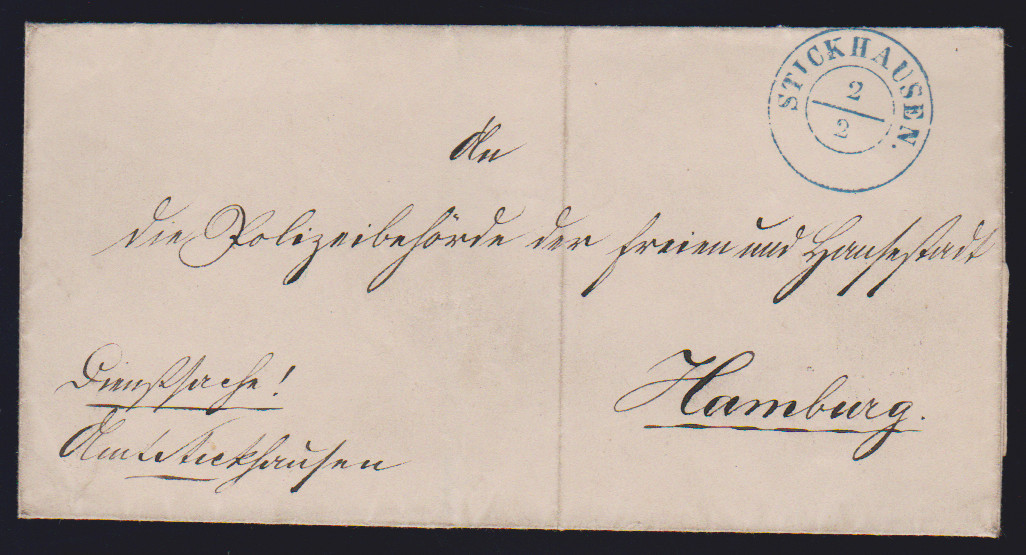 STICKHAUSEN.
2
2
An
die Polizeibehörde der freien und Hansestadt
Hamburg.
Dienstsache!
Amt Stickhausen